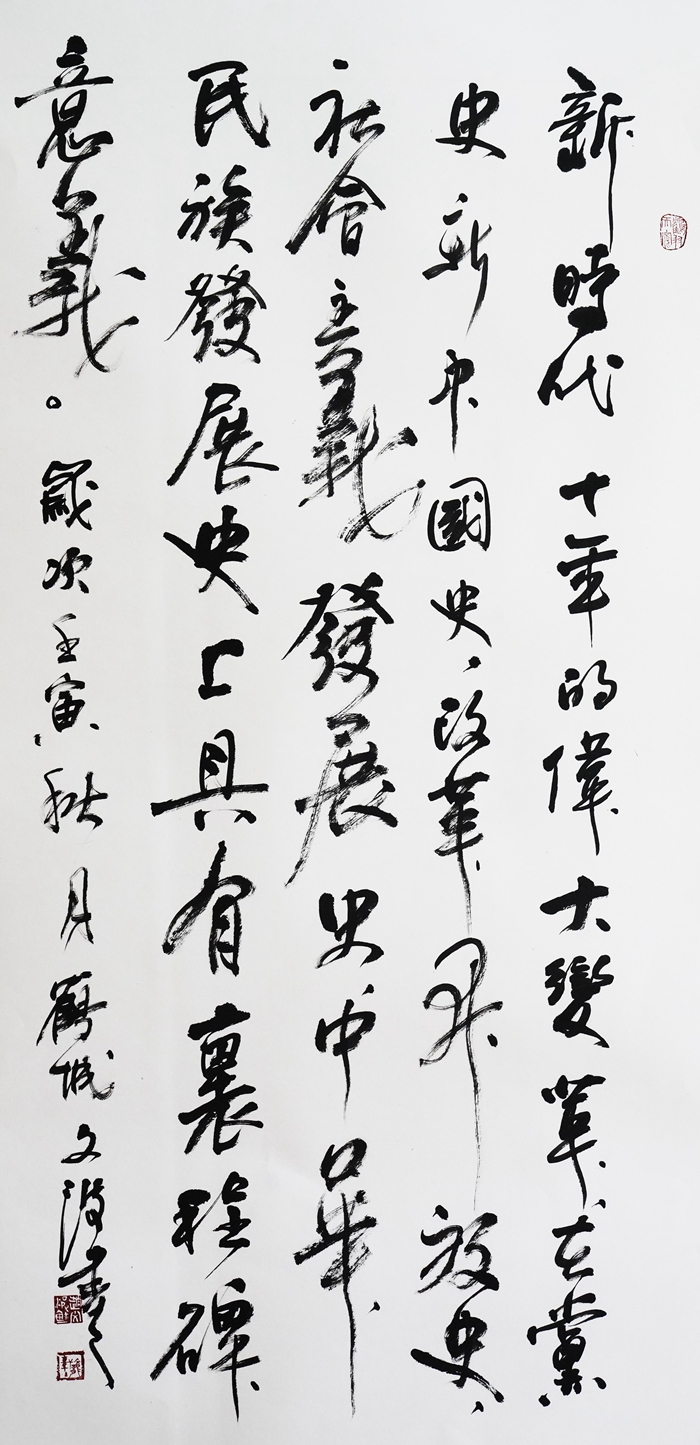 新時代十年的偉大變革在黨
史新中國史、改革開放史、
社會主義發展史中華
民族發展史上具有裏程碑
意義。歲次壬寅秋月鶴城文波書